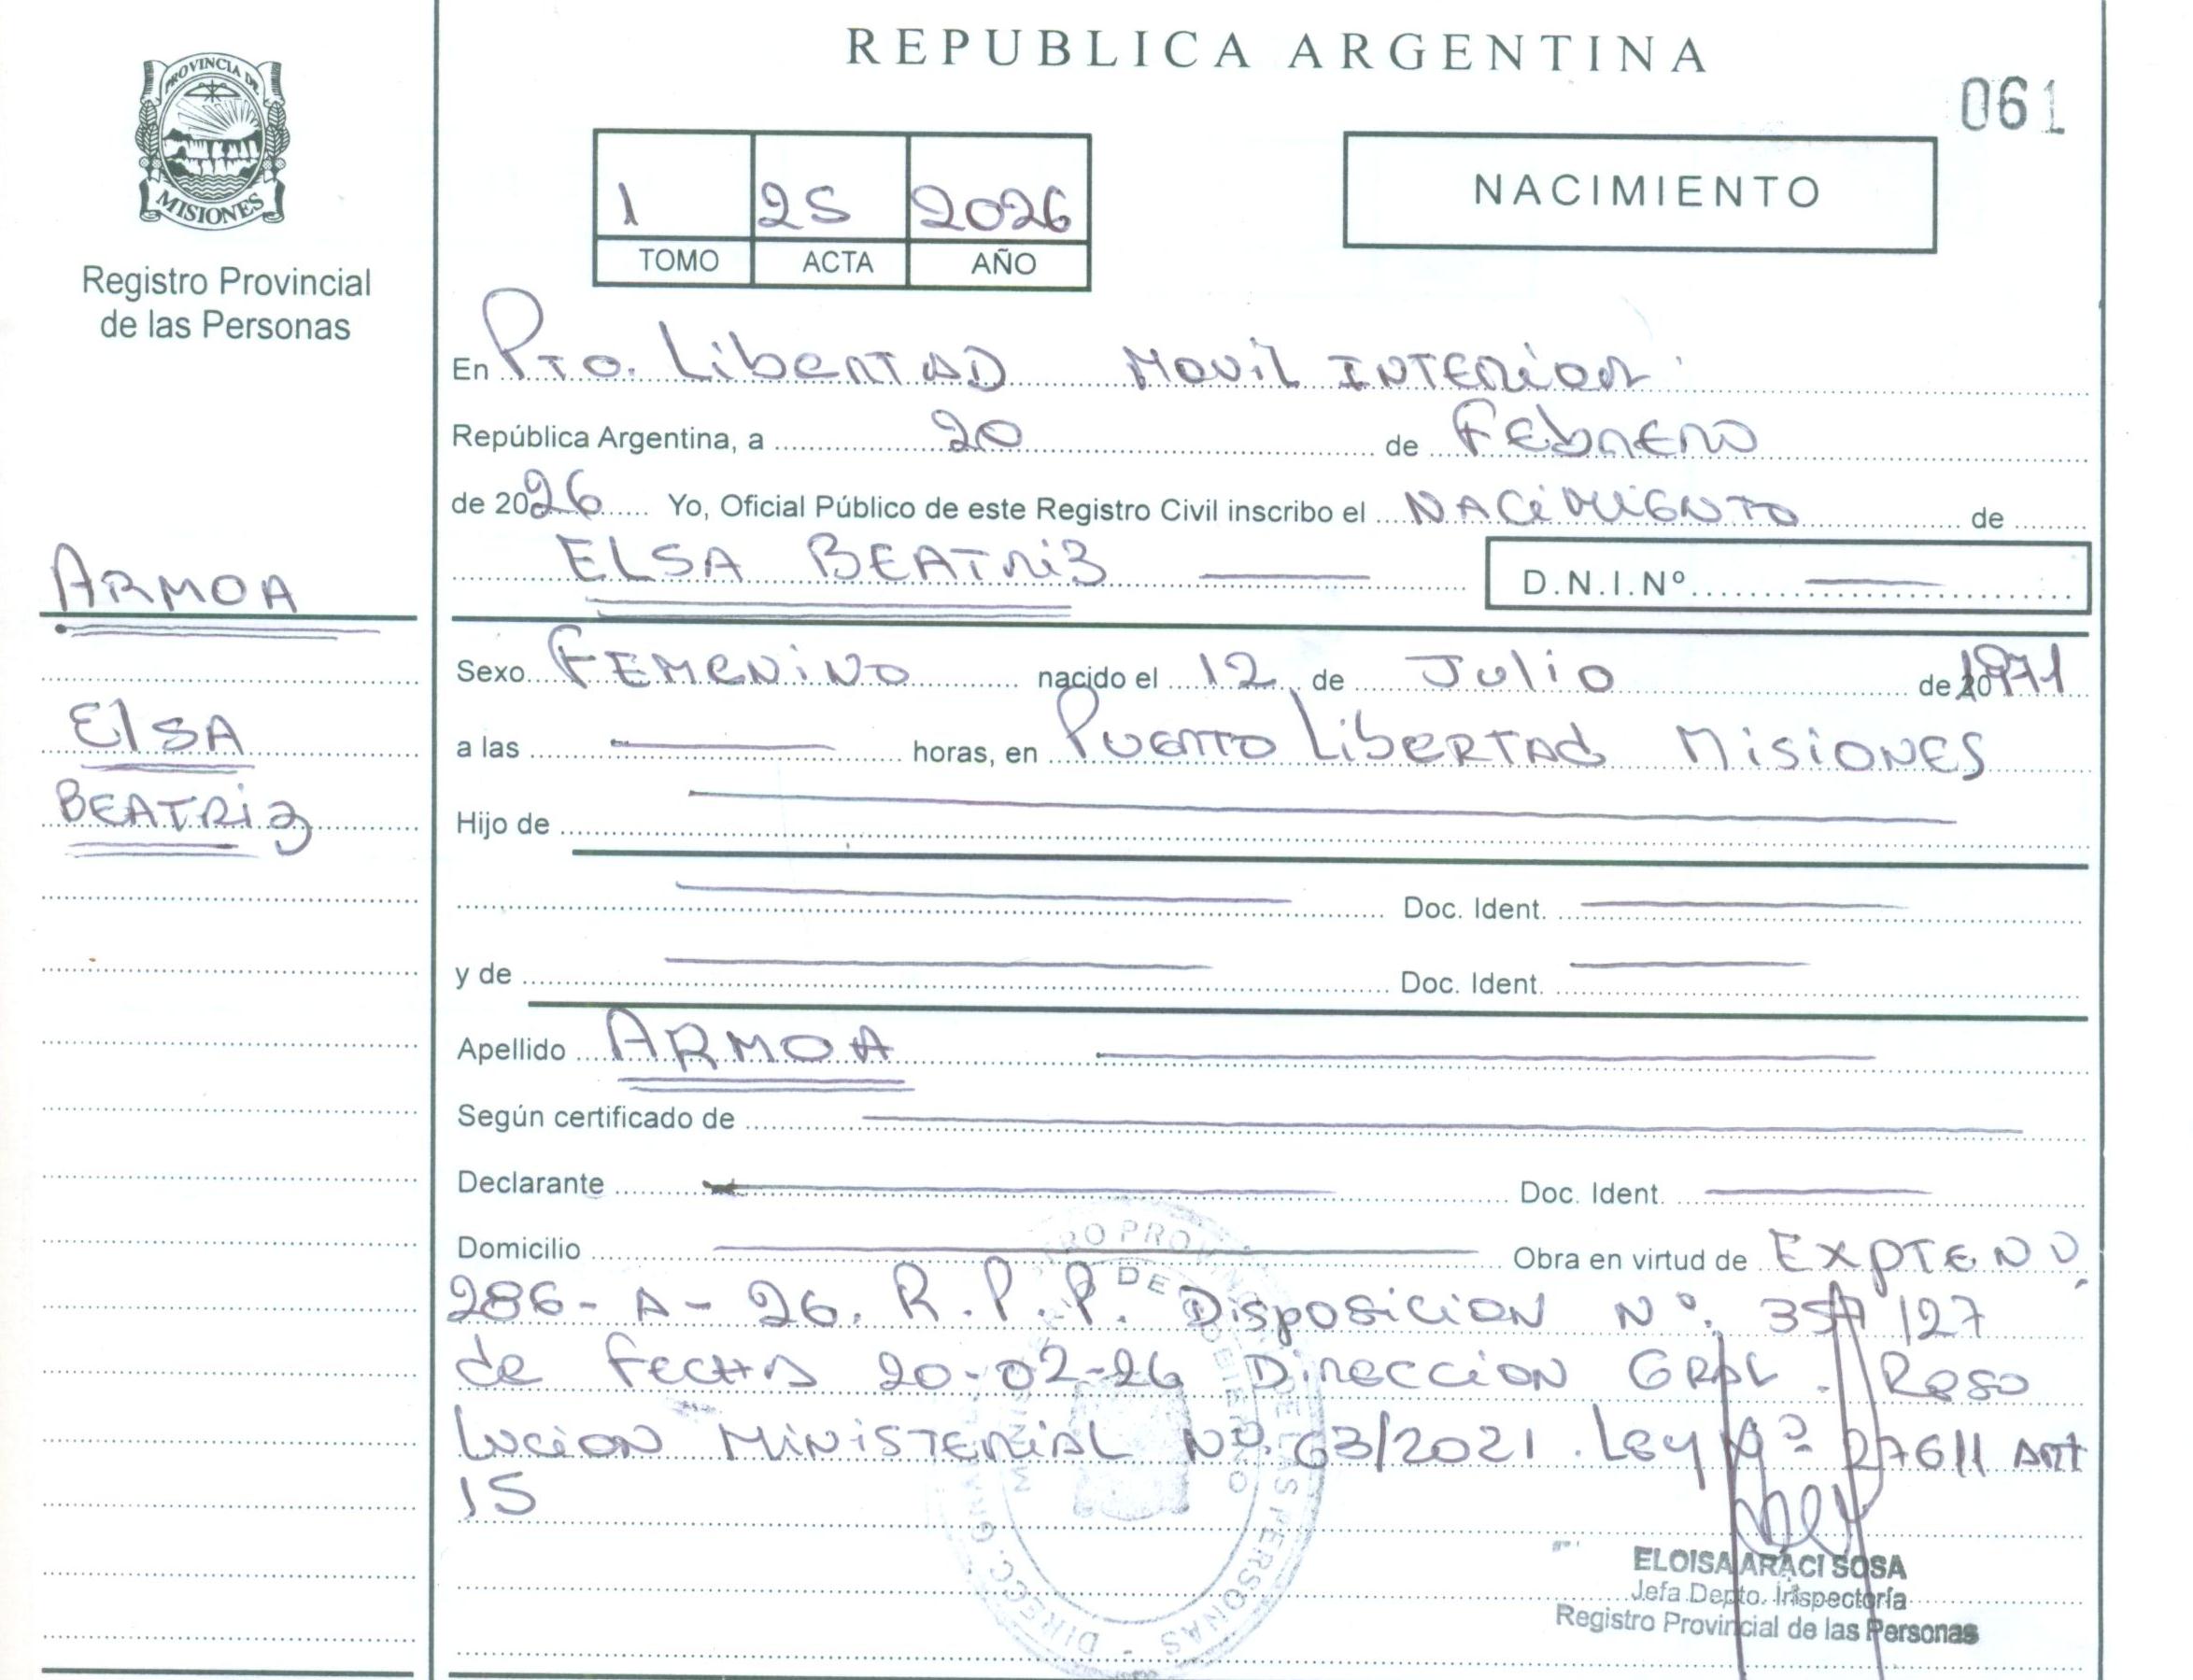 REPUBLICA ARGENTINA
061
PROVINCIA DE
MISIONES
Registro Provincial
de las Personas
1 25 2026
TOMO ACTA AÑO
NACIMIENTO
En Pto. Libertad Movil Interior
República Argentina, a 20 de Febrero
de 2026 Yo, Oficial Público de este Registro Civil inscribo el NACIMIENTO de
ELSA BEATRIZ D.N.I.Nº
ARMOA
Sexo FEMENINO nacido el 12 de Julio de 1971
ElSA
a las horas, en Puerto Libertad Misiones
BEATRIZ
Hijo de
Doc. Ident.
y de Doc. Ident.
Apellido ARMOA
Según certificado de
Declarante Doc. Ident.
Domicilio Obra en virtud de Expte Nº
286-A-26. R.P.P. Disposicion Nº. /27
de fecha 20-02-26 Direccion GRAL. Reso
lucion Ministerial Nº. 63/2021. Ley Nº 27611 Art
15
ELOISA ARACI SOSA
Jefa Depto. Inspectoría
Registro Provincial de las Personas